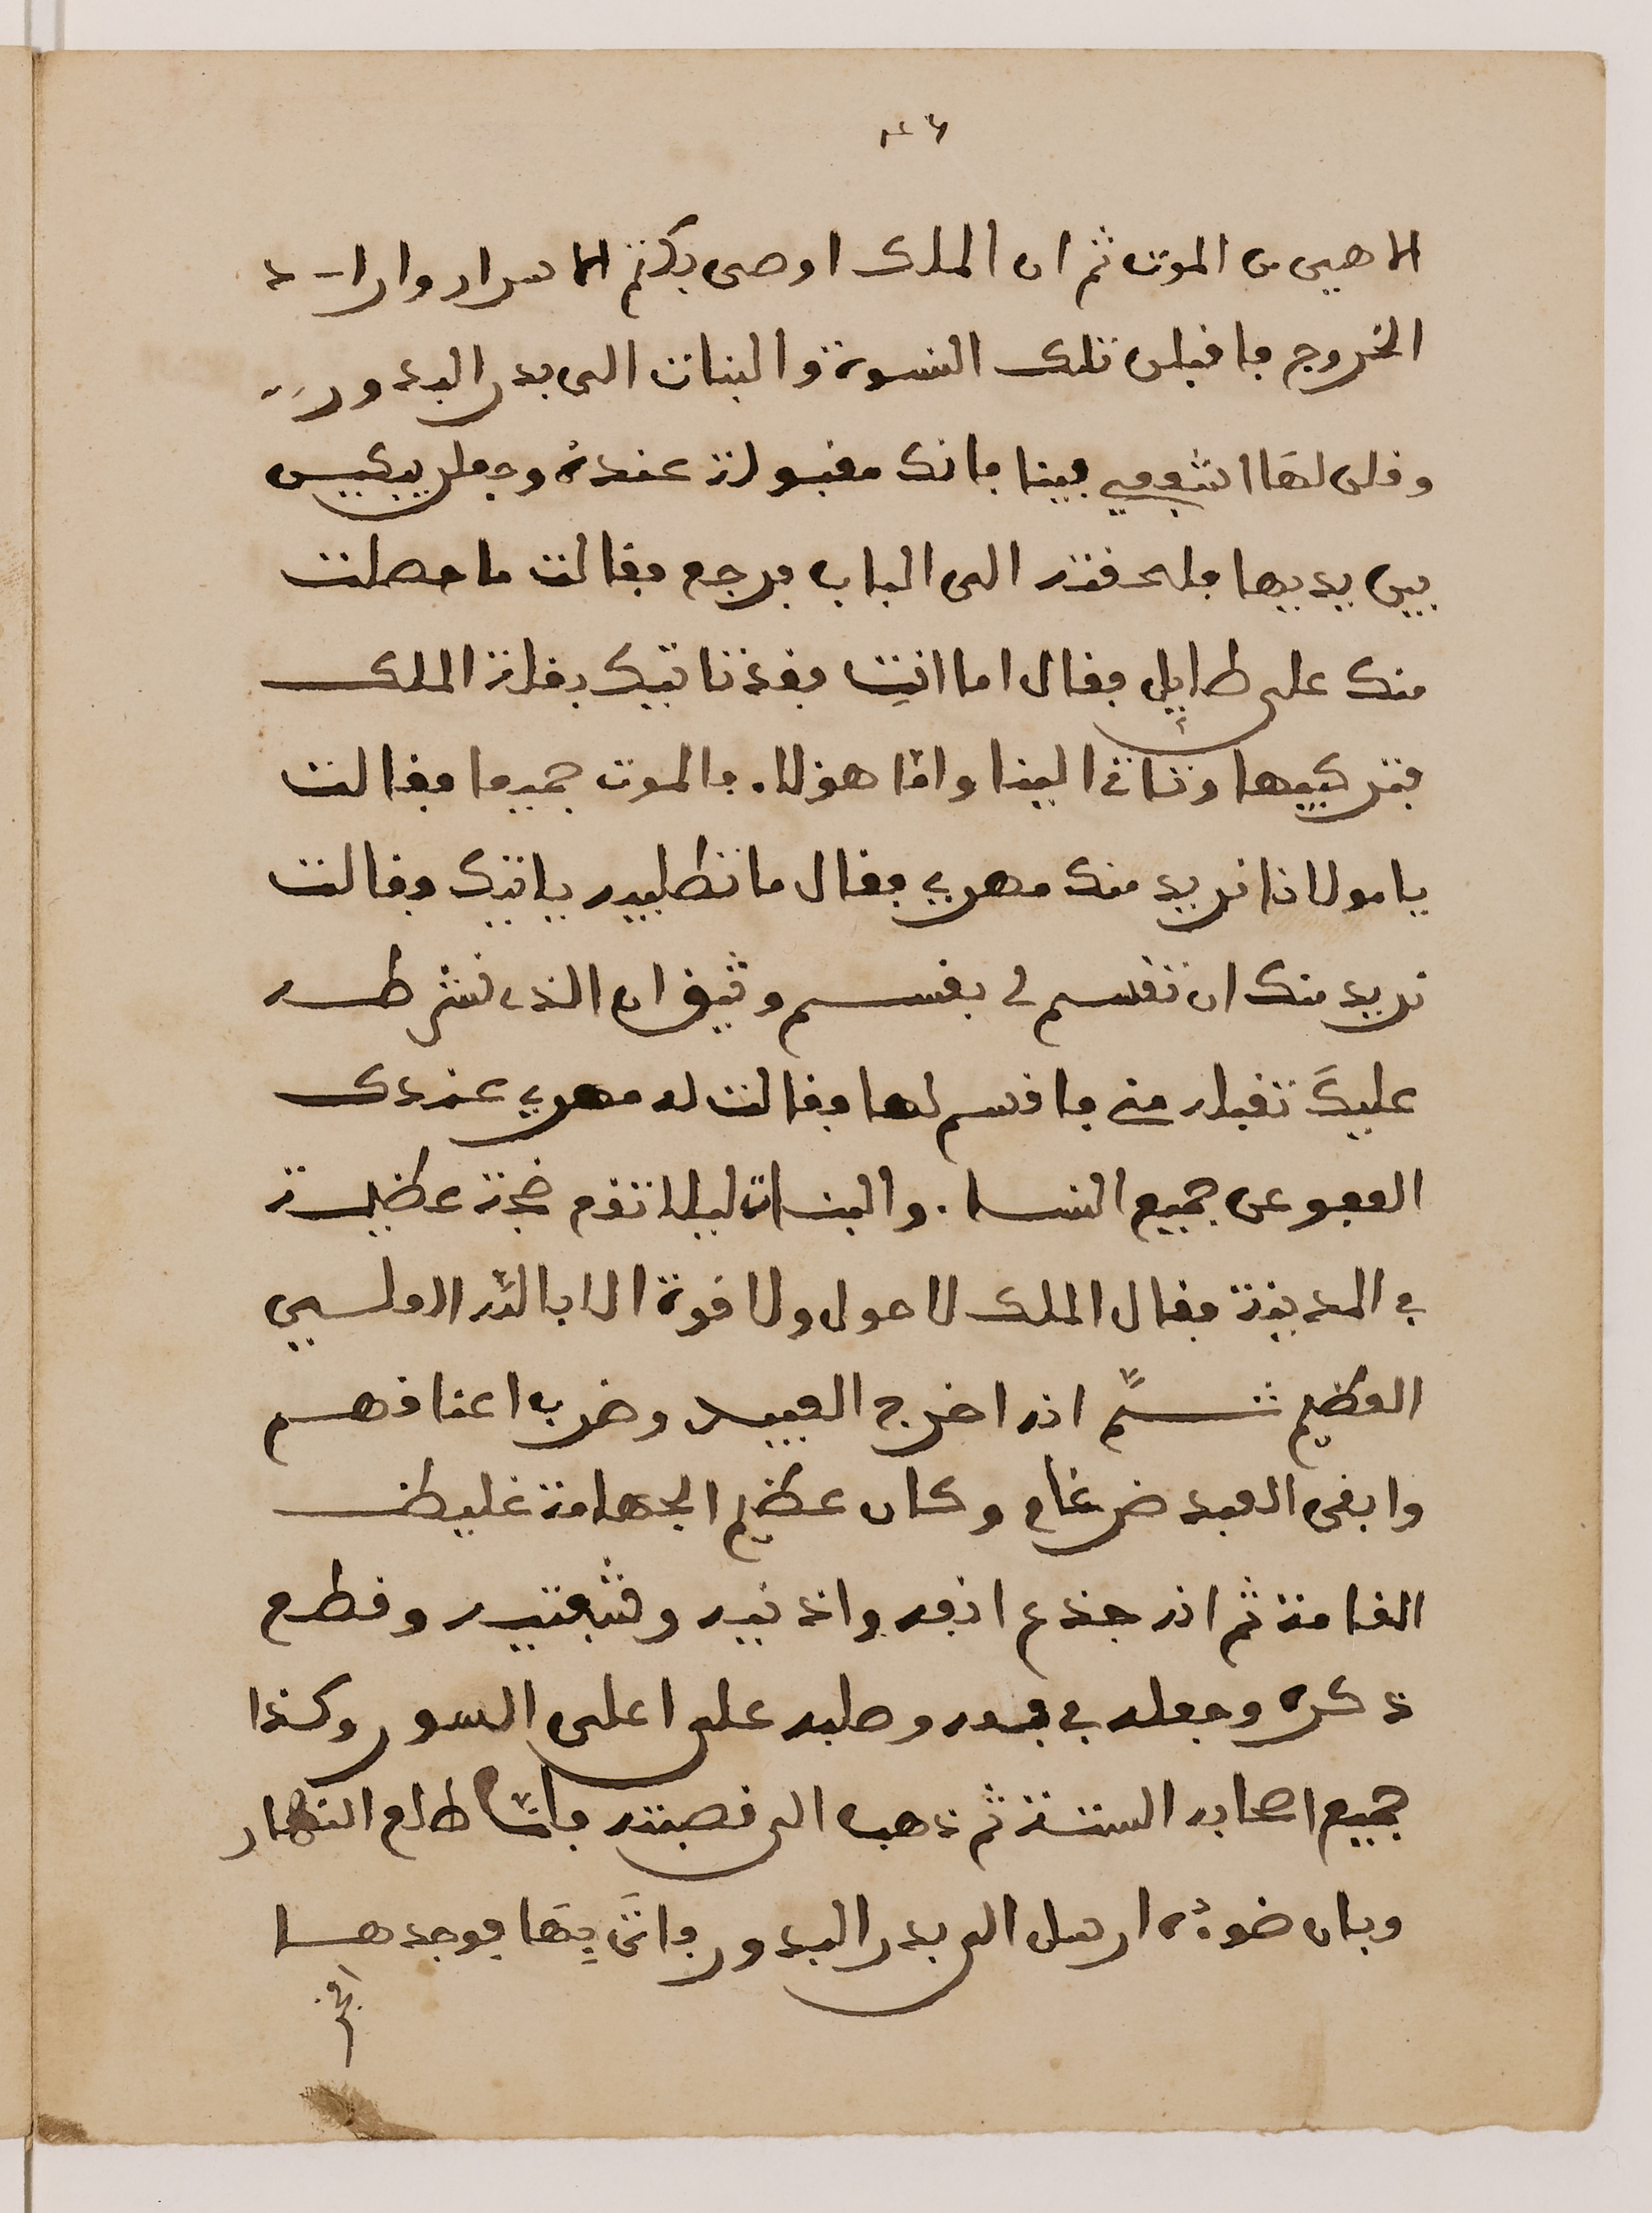 الا هي من الموت ثم ان الملك اوصى بكتم الاسرار واراد
الخروج فاقبلن تلك النسوة والبنات الى بدر البدور
وقلن لها اشفعي فينا فانك مقبولة عنده وجعلن يبكين
بين يديها فلحقته الى الباب فرجع فقالت ما حصلت
منك على طايل فقال اما انتِ فغدا ناتيك بغلة الملك
فتركبيها وتاتي الينا واما هولا. فالموت جميعا فقالت
يا مولانا نريد منك مهري فقال ما تطلبيه ياتيك فقالت
نريد منك ان تقسم لي بقسم وثيق ان الذي نشرطه
عليكَ تقبله مني فاقسم لها فقالت له مهري عندك
العفو عن جميع النسا. والبنات ليلا تقع ضجة عظيمة
في المدينة فقال الملك لا حول ولا قوة الا بالله العلي
العظيم ثمَّ انه اخرج العبيد وضرب اعناقهم
وابقى العبد ضرغام وكان عظيم الجهامة غليظ
القامة ثم انه جذع انفه واذنيه وشفتيه وقطع
ذكره وجعله في فمه وصلبه على اعلى السور وكذا
جميع اصحابه الستة ثم ذهب الى قصبته فلما طلع النهار
وبان ضوءه ارسل الى بدر البدور فاتى بِها فوجدها